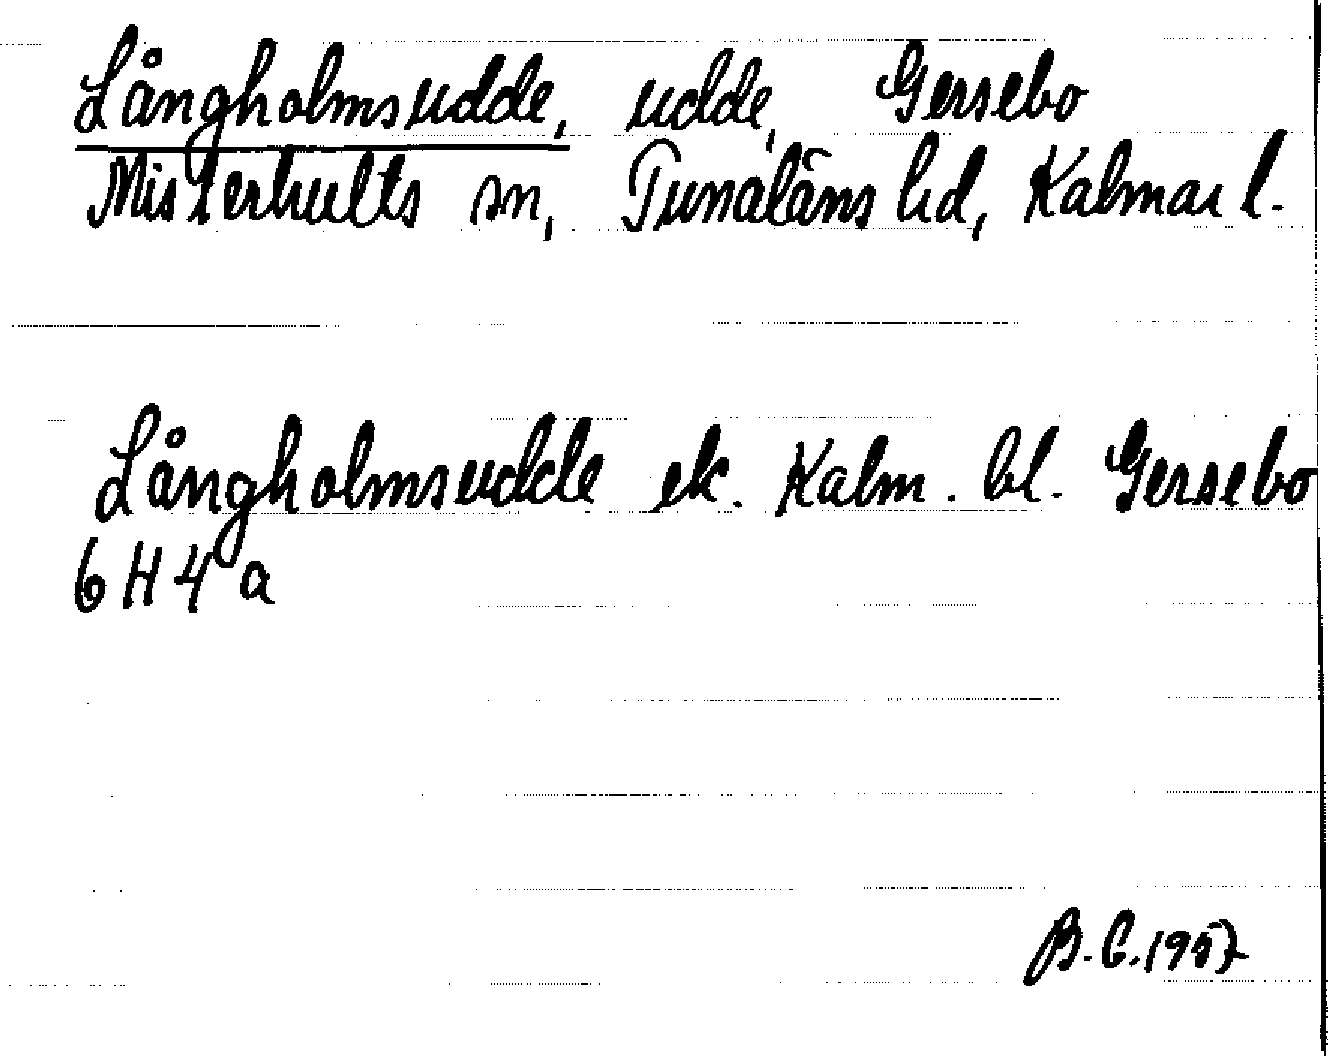 Långholmsudde, udde, Gersebo
Misterhults sn, Tunaläns hd, Kalmar l.
Långholmsudde ek. Kalm. bl. Gersebo
6 H 4 a
B.C. 1957